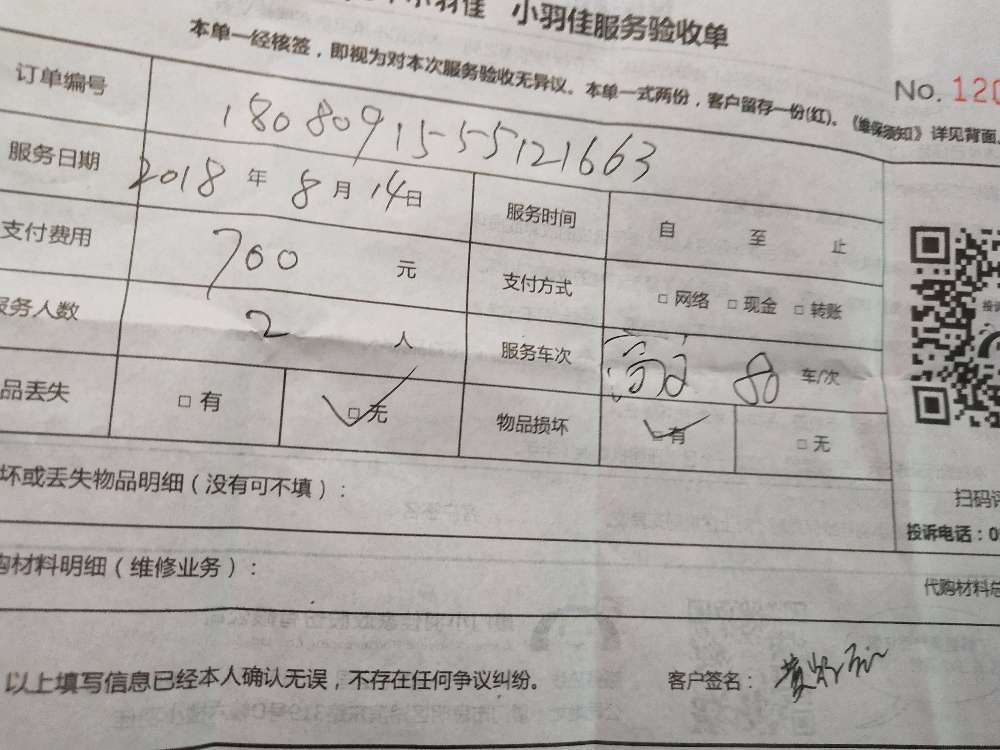 小羽佳服务验收单
本单一经核签，即视为对本次服务验收无异议。本单一式两份，客户留存一份(红)。《维保须知》详见背面。
No. 120
订单编号 18080915-55121663
服务日期 2018 年 8 月 14 日 服务时间 自 至 止
支付费用 700 元 支付方式 □ 网络 □ 现金 □ 转账
服务人数 2 人 服务车次 车/次
品丢失 □ 有 □ 无 物品损坏 □ 有 □ 无
坏或丢失物品明细（没有可不填）：
扫码
投诉电话：0
购材料明细（维修业务）：
代购材料总
以上填写信息已经本人确认无误，不存在任何争议纠纷。 客户签名：